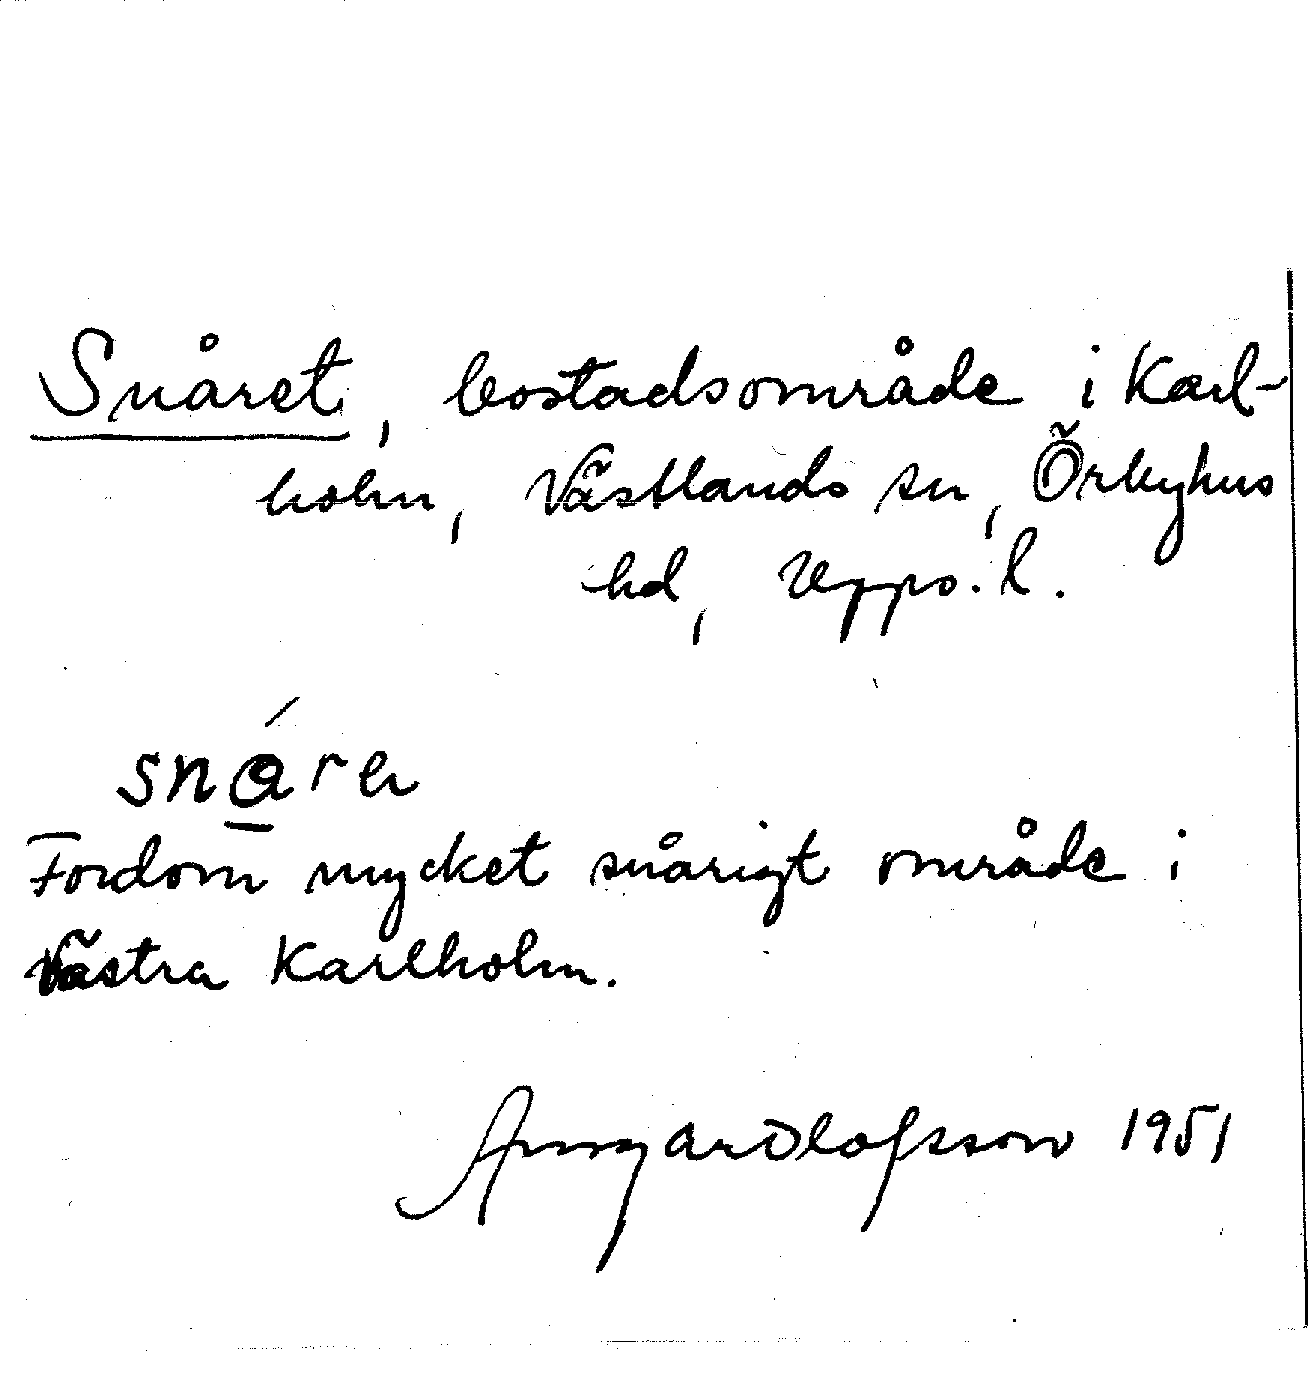 Snåret, bostadsområde i Karl-
holm, Västlands sn, Örbyhus
hd, Upps. l.
snåra
Fordom mycket snårigt område i
Västra Karlholm.
Olofsson 1951